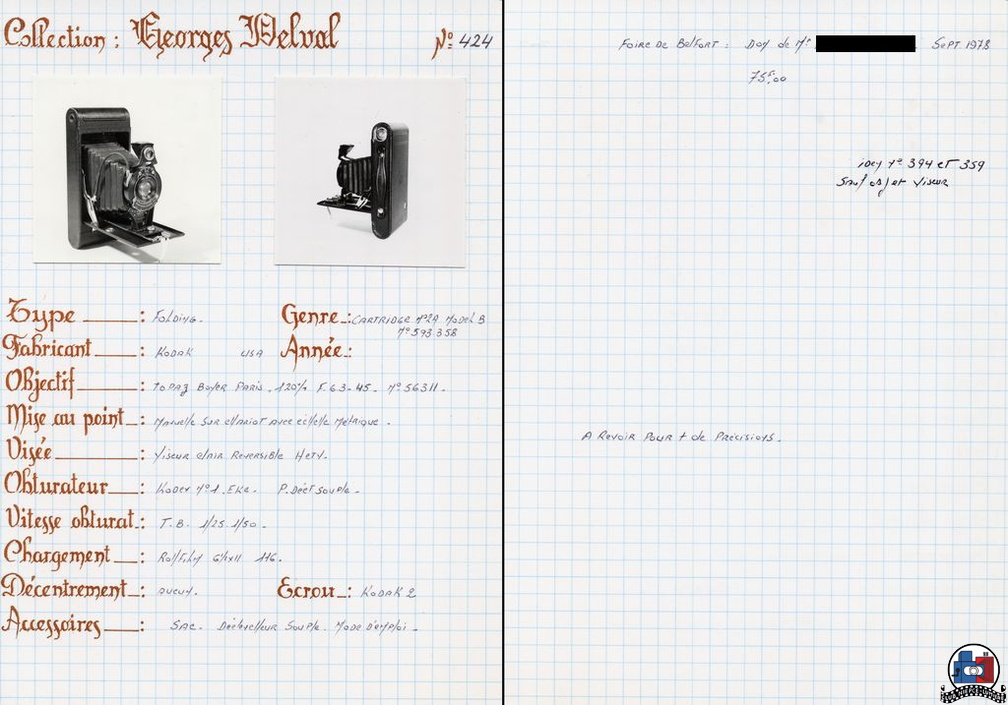 Collection : Georges Delval
N° 424
Type : Folding.
Genre : Cartridge N°2A Model B
N° 593358
Fabricant : Kodak USA
Année :
Objectif : Topaz Boyer Paris. 120% F. 6.3-45. N° 56311.
Mise au point : Manuelle sur chariot avec echelle Métrique.
Visée : Viseur clair Reversible
Obturateur : Kodex N°1. P. Déct souple.
Vitesse obturat. : T.B. 1/25. 1/50.
Chargement : Rollfilm 116.
Décentrement : aucun.
Ecrou : Kodak 2
Accessoires : Sac. Déclencheur Souple. Mode d'emploi.
Foire de Belfort : Don de Mr Sept. 1978
75F,00
idem N° 394 et 359
Sauf objet viseur
A Revoir Pour + de Précisions.